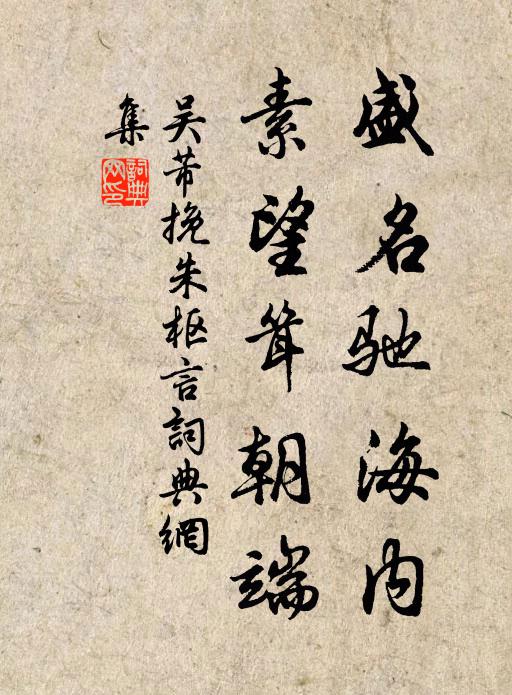 盛名馳海内
素望耸朝端
吴芾挽朱枢言詞典網
集
詞典
网印